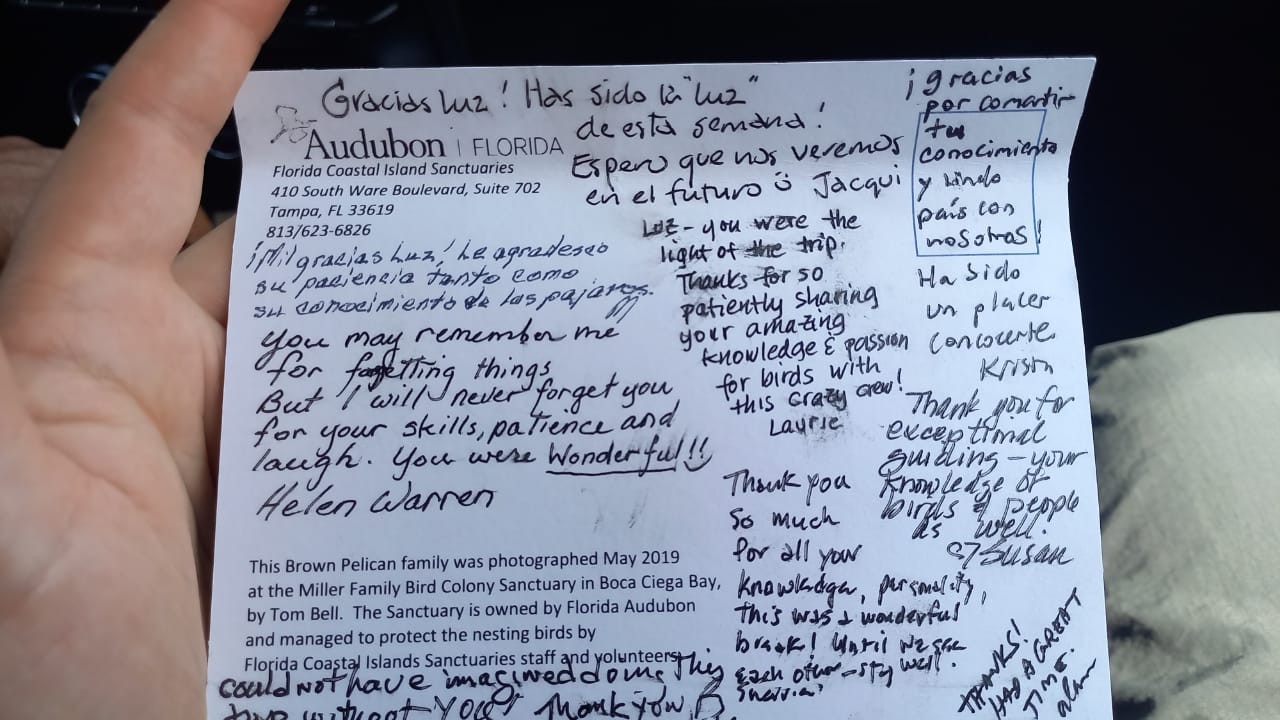 Gracias Luz! Has sido la "luz"
de esta semana!
Espero que nos veremos
en el futuro Jacqui
¡gracias
por comartir
tu
conocimiento
y lindo
país con
nosotras!
Ha sido
un placer
concocerte
Kristn
Audubon | FLORIDA
Florida Coastal Island Sanctuaries
410 South Ware Boulevard, Suite 702
Tampa, FL 33619
813/623-6826
¡Mil gracias Luz! Le agradesco
su paciencia tanto como
su conocimiento de las pajaros.
You may remember me
for forgetting things
But I will never forget you
for your skills, patience and
laugh. You were Wonderful!!
Helen Warren
Luz - you were the
light of the trip.
Thanks for so
patiently sharing
your amazing
knowledge & passion
for birds with
this crazy crew!
Laurie
Thank you for
exceptional
guiding - your
knowledge of
birds & people
as well.
Susan
Thank you
so much
for all your
knowledge, personality,
this was a wonderful
break! Until we see
each other - stay well.
This Brown Pelican family was photographed May 2019
at the Miller Family Bird Colony Sanctuary in Boca Ciega Bay,
by Tom Bell. The Sanctuary is owned by Florida Audubon
and managed to protect the nesting birds by
Florida Coastal Islands Sanctuaries staff and volunteers.
could not have imagined doing this
without you! Thank you
THANKS!
HAD A GREAT
TIME.